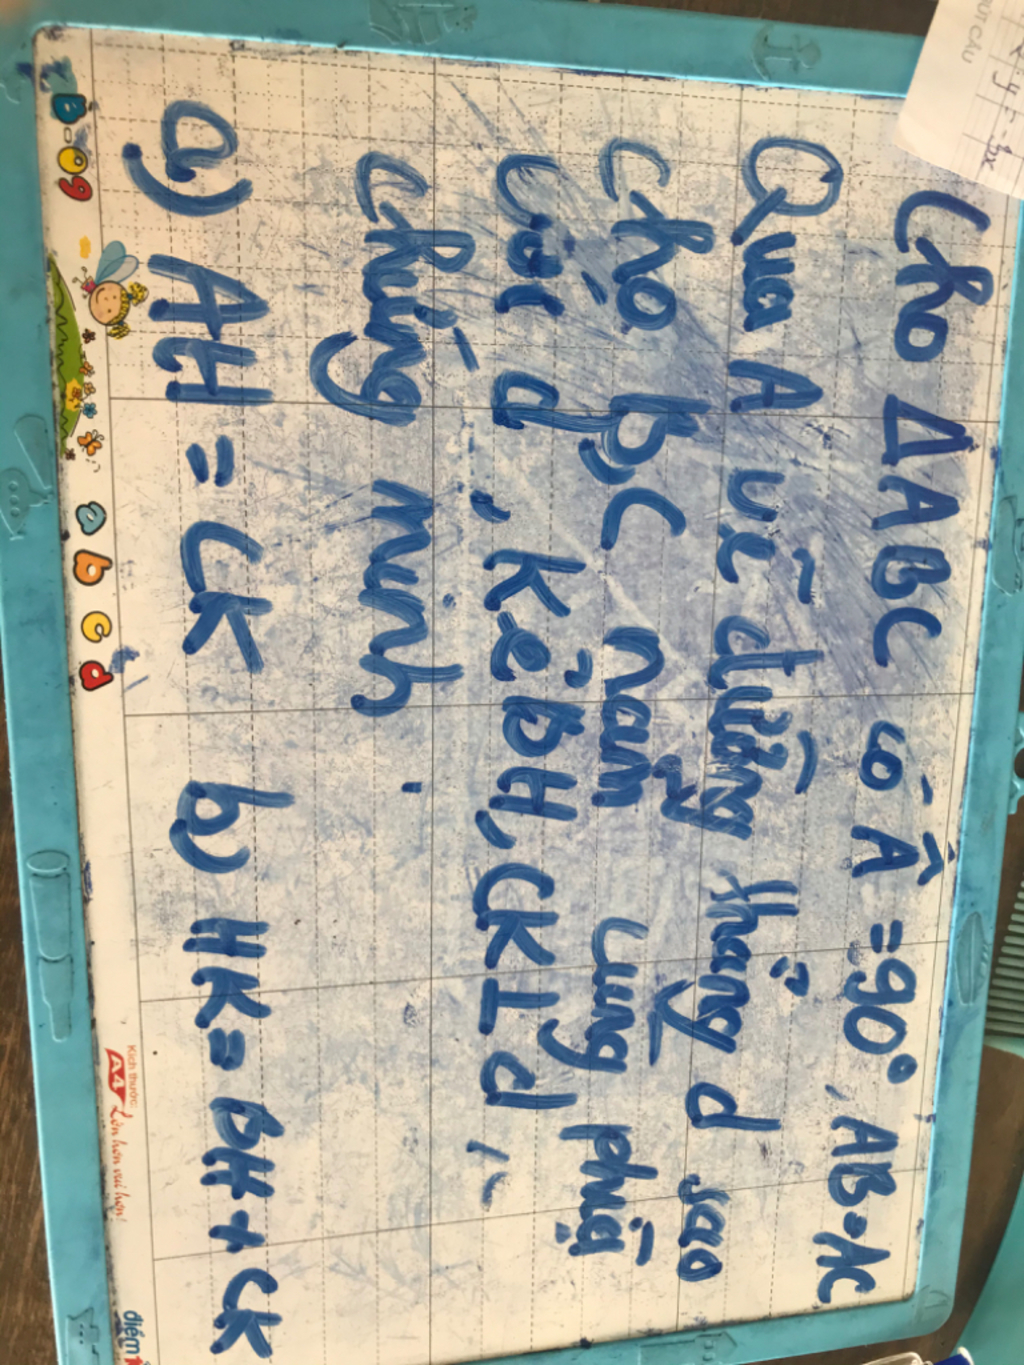 Cho ΔABC có Â = 90°, AB = AC
Qua A vẽ đường thẳng d sao
cho B,C nằm cùng phía
với d, kẻ BH, CK ⊥ d
chứng minh
a) AH = CK b) HK = BH + CK
B-09
a b c d
Kích thước
A4 Lớn hơn vui hơn!
điểm 1